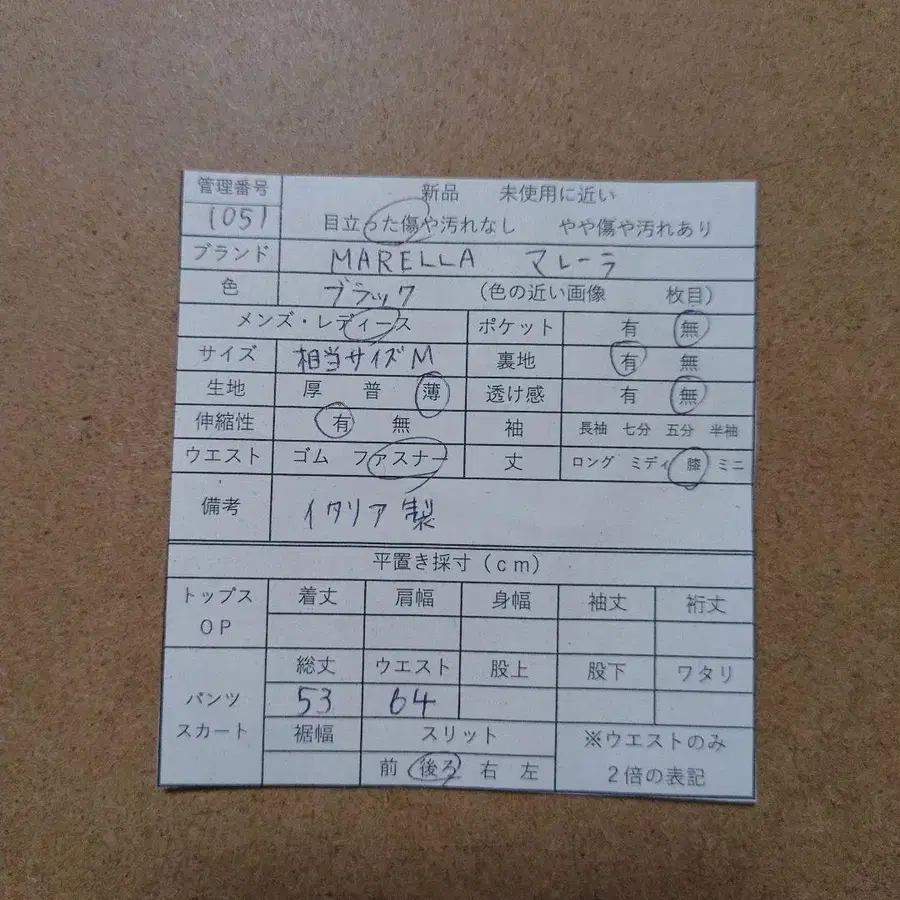 管理番号 新品 未使用に近い
1051 目立った傷や汚れなし やや傷や汚れあり
ブランド MARELLA マレーラ
色 ブラック (色の近い画像 枚目)
メンズ・レディース ポケット 有 無
サイズ 相当サイズM 裏地 有 無
生地 厚 普 薄 透け感 有 無
伸縮性 有 無 袖 長袖 七分 五分 半袖
ウエスト ゴム ファスナー 丈 ロング ミディ 膝 ミニ
備考 イタリア製
平置き採寸(cm)
トップス OP 着丈 肩幅 身幅 袖丈 裄丈
パンツ スカート 総丈 ウエスト 股上 股下 ワタリ
53 64
裾幅 スリット ※ウエストのみ
前 後ろ 右 左 2倍の表記